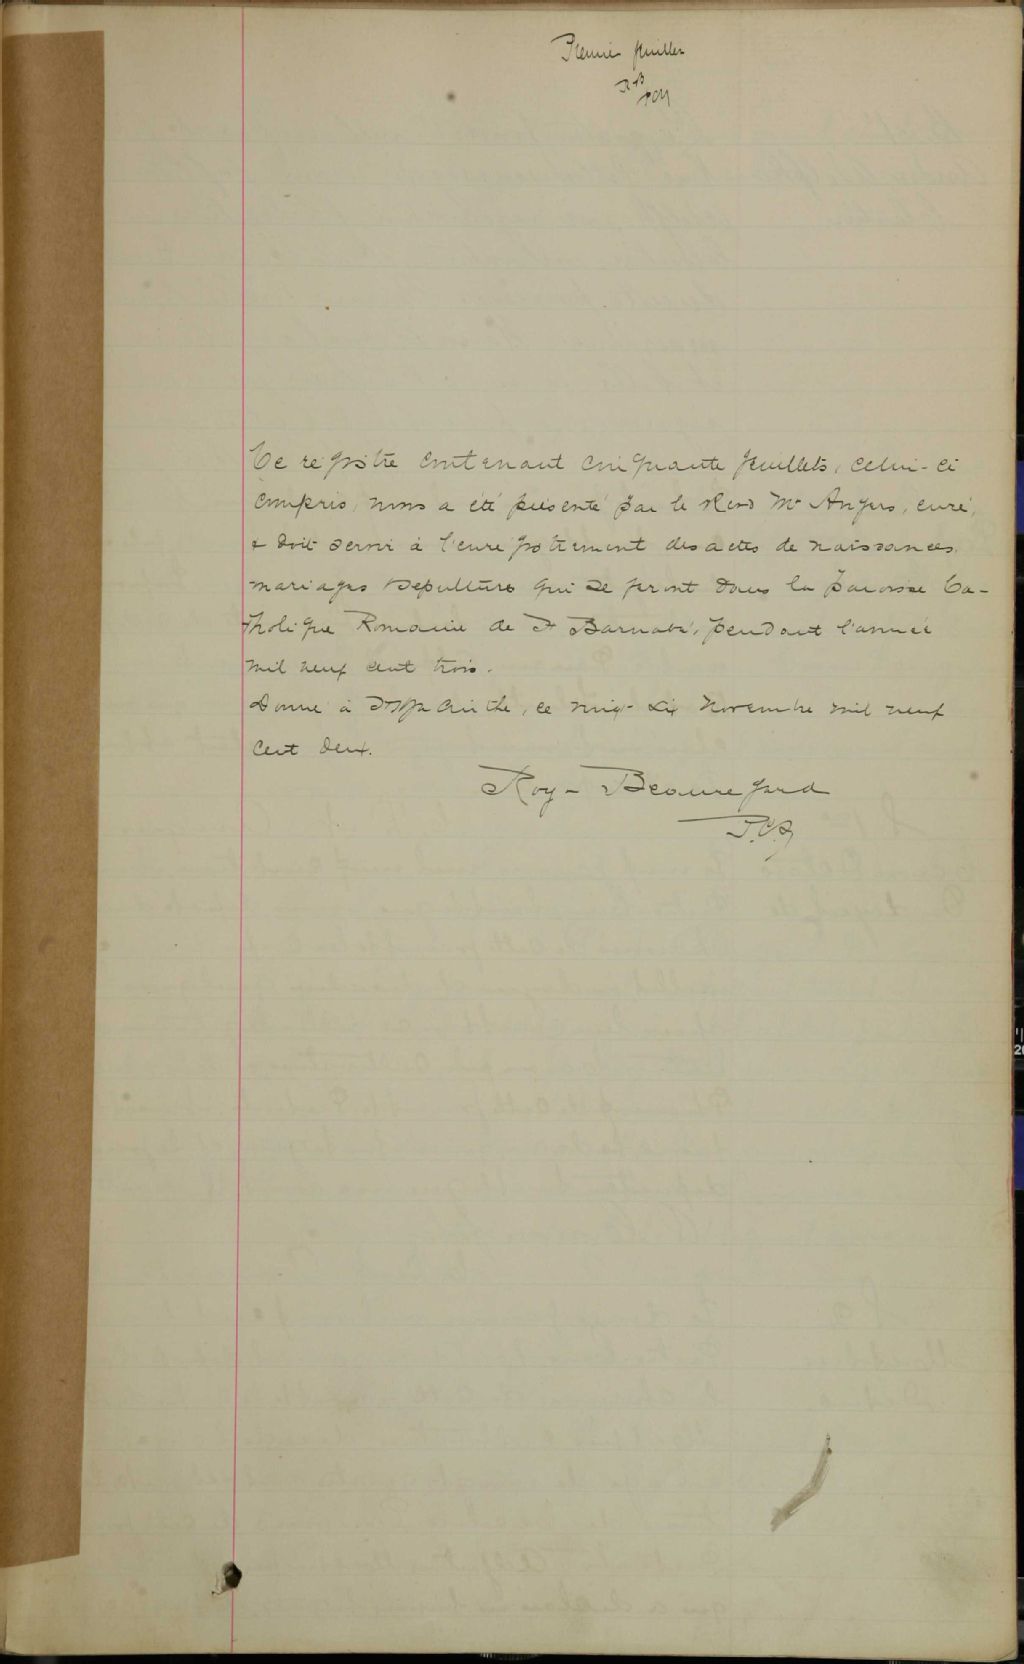 Premier feuillet
R B
PCS
Ce registre contenant cinquante feuillets, celui-ci
compris, nous a été présenté par le Revd Mr Angers, curé,
& doit servir à l'enregistrement des actes de naissances,
mariages sepultures qui se feront dans la paroisse Ca-
tholique Romaine de St Barnabé, pendant l'année
mil neuf cent trois.
Donné à St Hyacinthe, ce vingt-six Novembre mil neuf
cent deux.
Roy - Beauregard
P.C.S